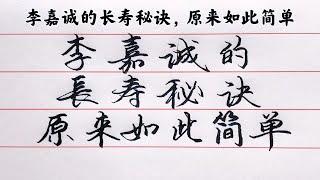 李嘉诚的长寿秘诀，原来如此简单
李嘉诚的
長寿秘诀
原来如此简单